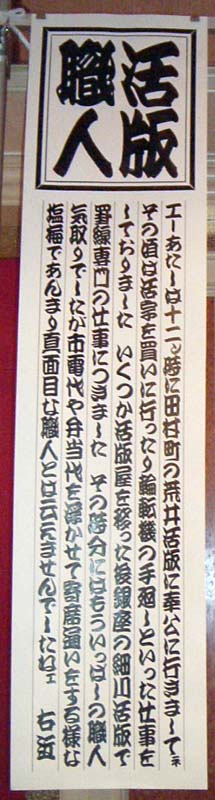 活版
職人
エーあたしは十二の時に田村町の荒井活版に奉公に行きましてネ
その頃は活字を買いに行ったり輪転機の手廻しといった仕事を
しておりました いくつか活版屋を移った後銀座の細川活版で
罫線専門の仕事につきました その時分にはもういっぱしの職人
気取りでしたが市電代や弁当代を浮かせて寄席通いをする様な
塩梅であんまり真面目な職人とは云えませんでしたねェ 右女